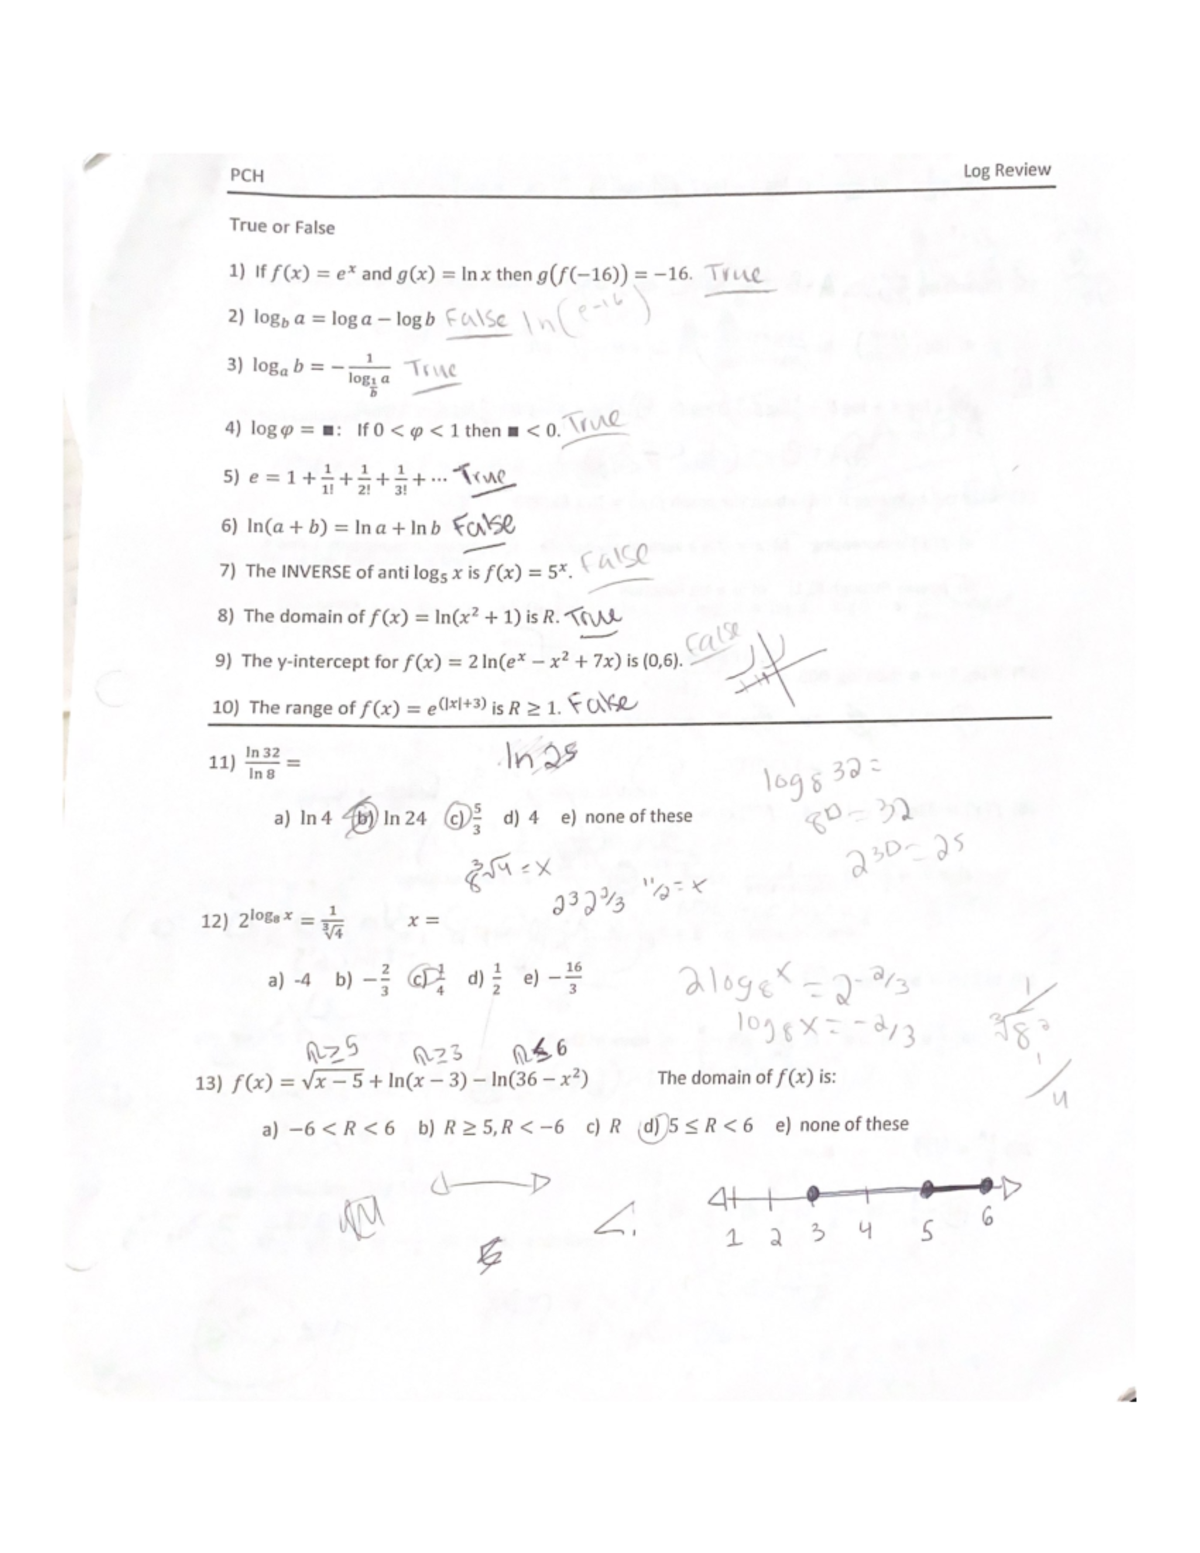 PCH Log Review
True or False
1) If f(x) = eˣ and g(x) = ln x then g(f(−16)) = −16. True
2) log_b a = log a − log b False ln(e-16)
3) logₐ b = − 1/(log_(1/b) a) True
4) log φ = ■: If 0 < φ < 1 then ■ < 0. True
5) e = 1 + 1/1! + 1/2! + 1/3! + ⋯ True
6) ln(a + b) = ln a + ln b False
7) The INVERSE of anti log₅ x is f(x) = 5ˣ. False
8) The domain of f(x) = ln(x² + 1) is R. True
9) The y-intercept for f(x) = 2 ln(eˣ − x² + 7x) is (0,6). False
10) The range of f(x) = e^(|x|+3) is R ≥ 1. False
11) ln 32 / ln 8 = ln 25
log8 32 =
a) ln 4 b) ln 24 c) 5/3 d) 4 e) none of these
8□ = 32
2 3□ = 25
8 3√4 = x
2 3 2 2/3 11/2 = x
12) 2^(log₈ x) = 1/∛4 x =
a) -4 b) −2/3 c) 1/4 d) 1/2 e) −16/3
2log8x = 2-2/3
log8x = -2/3
1/ 3√8 2
1/4
R≥5 R≥3 R≤6
13) f(x) = √(x − 5) + ln(x − 3) − ln(36 − x²) The domain of f(x) is:
a) −6 < R < 6 b) R ≥ 5, R < −6 c) R d) 5 ≤ R < 6 e) none of these
1 2 3 4 5 6